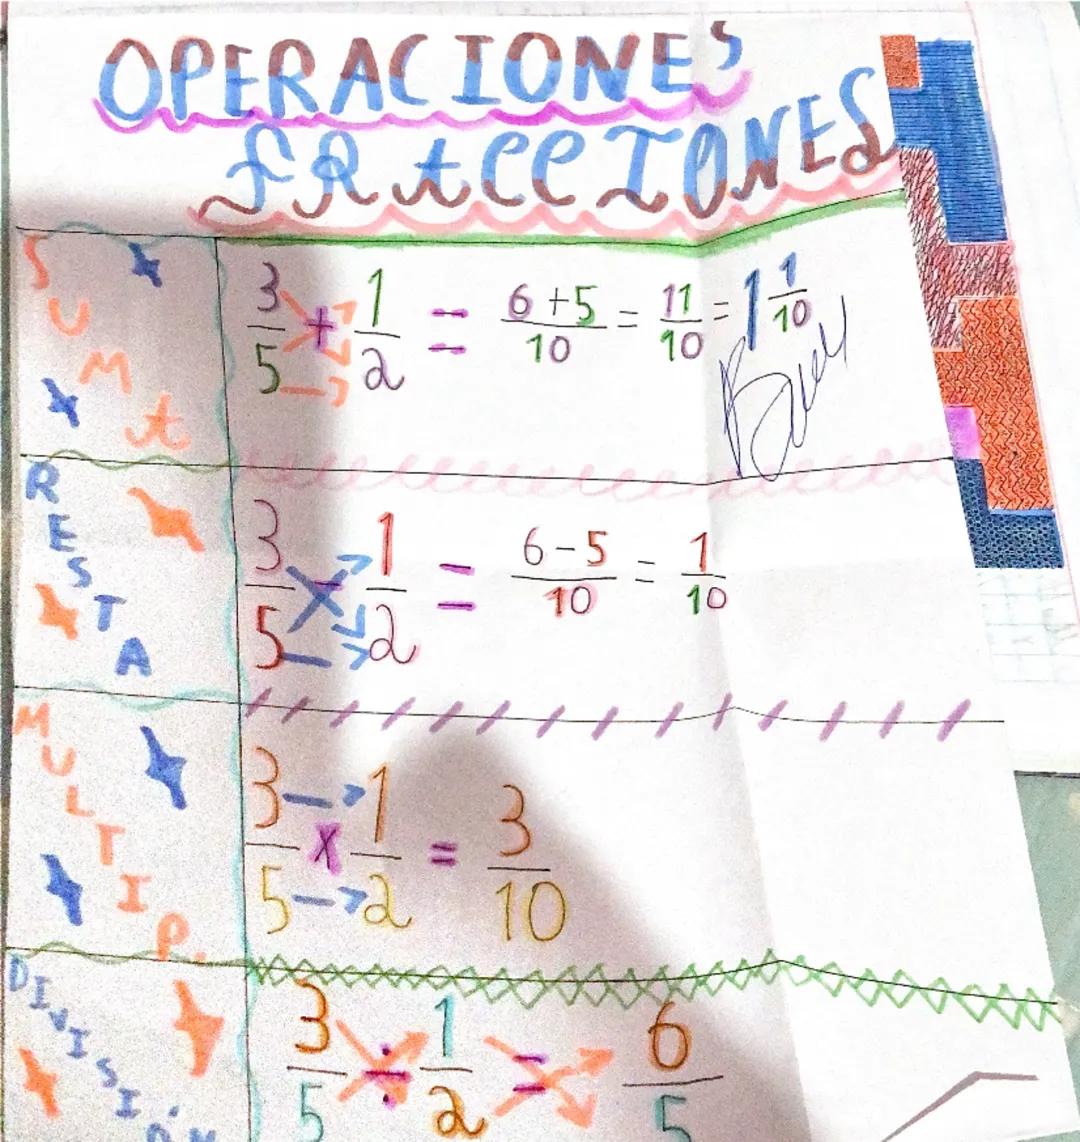 OPERACIONES
FRACCIONES
SUMA
3/5 + 1/2 = 6+5/10 = 11/10 = 1 1/10
RESTA
3/5 - 1/2 = 6-5/10 = 1/10
MULTIP.
3/5 x 1/2 = 3/10
DIVISIÓN
3/5 ÷ 1/2 = 6/5